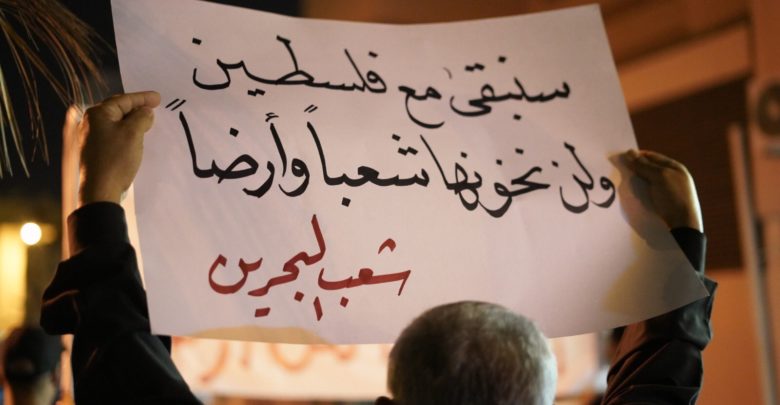 سنبقى مع فلسطين
ولن نخونها شعباً وأرضاً
شعب البحرين